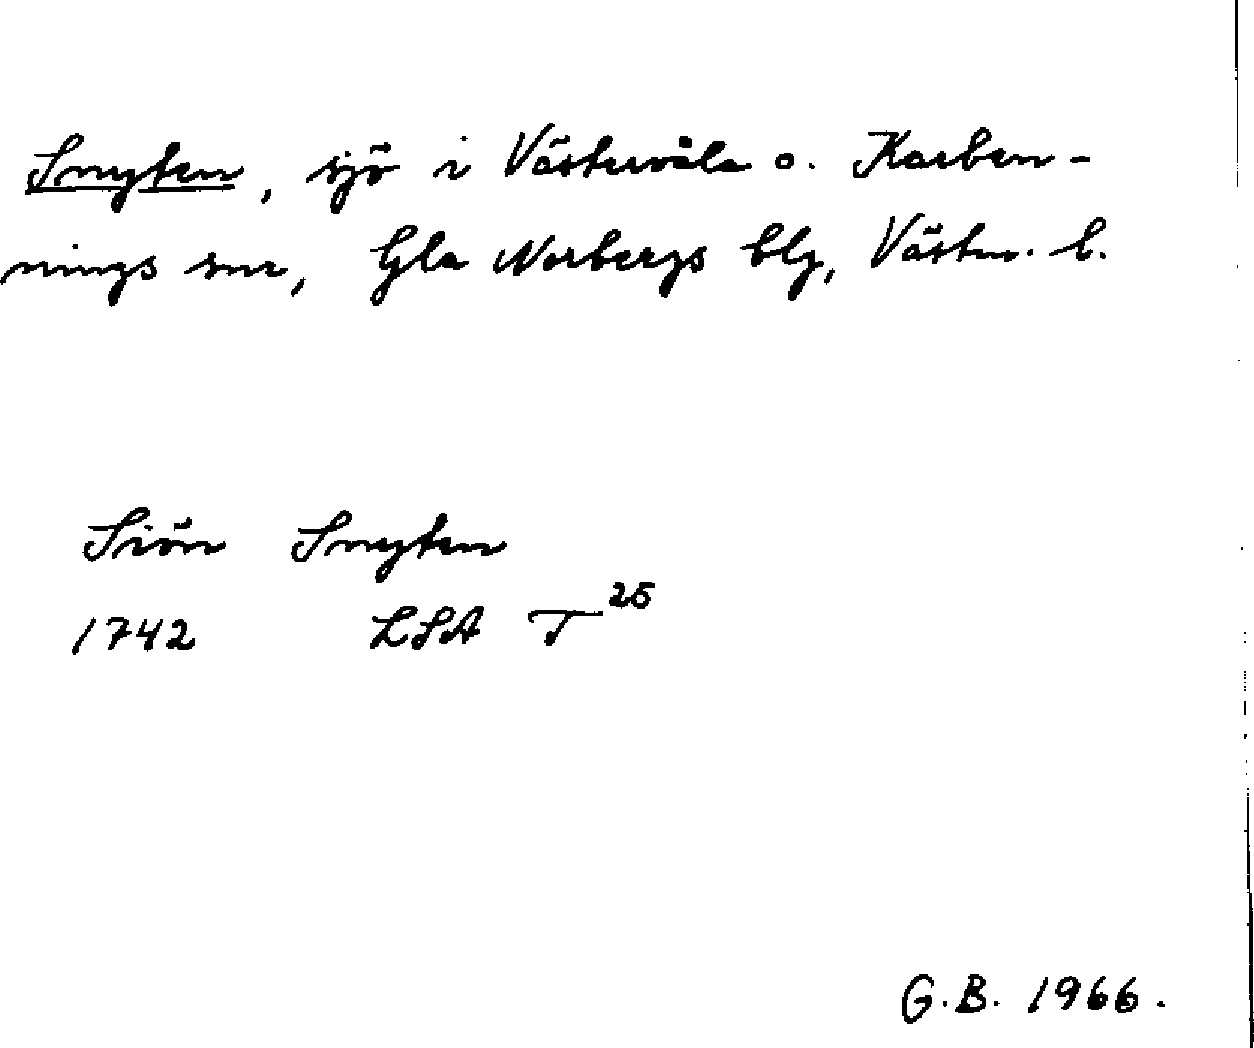 Snyten, sjö i Västervåla o. Karben-
nings snr, Gla Norbergs blg, Västm. l.
Siön Snyten
1742 LSA T²⁵
G.B. 1966.